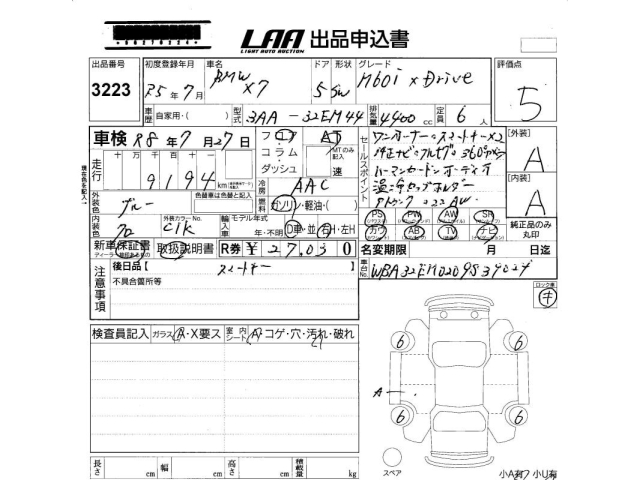 LAA 出品申込書
LIGHT AUTO AUCTION
出品番号 初度登録年月 車名 ドア 形状 グレード 評価点
3223 R5年7月 BMW X7 5 SW M60i xDrive 5
車歴 自家用・( ) 型式 3AA-32EM44 排気量 4400 cc 定員 6 人
車検 R8年7月27日
フロア AT
コラム MTのみ記入
ダッシュ 速
セールスポイント
ワンオーナー・スマートキー×2
純正ナビ・フルセグ・360°カメラ
ハーマンカードンオーディオ
温冷カップホルダー
[外装]
A
[内装]
A
走行 十万 万 千 百 十
9194 km
冷房 AAC
外装色 ブルー
色替車は色番と記入
燃料 ガソリン・軽油・( )
内装色 クロ
外装カラーNo. C1K
輸入車 モデル年式 年・不明 D車・並 右H・左H
PS PW AW SR
カワ AB TV ナビ
純正品のみ丸印
新車保証書 取扱説明書 R券 ¥ 27,030
名変期限 月 日迄
車台No. WBA32EM0209S39024
注意事項
後日品【 スマートキー 】
不具合箇所等
検査員記入 ガラス A・X要ス 室内シート A・コゲ・穴・汚れ・破れ
ロック車 キ
6 6
A
6 6
スペア
長さ cm 幅 cm 高さ cm 積載量 kg
小A有 小U有
現在色を記入→